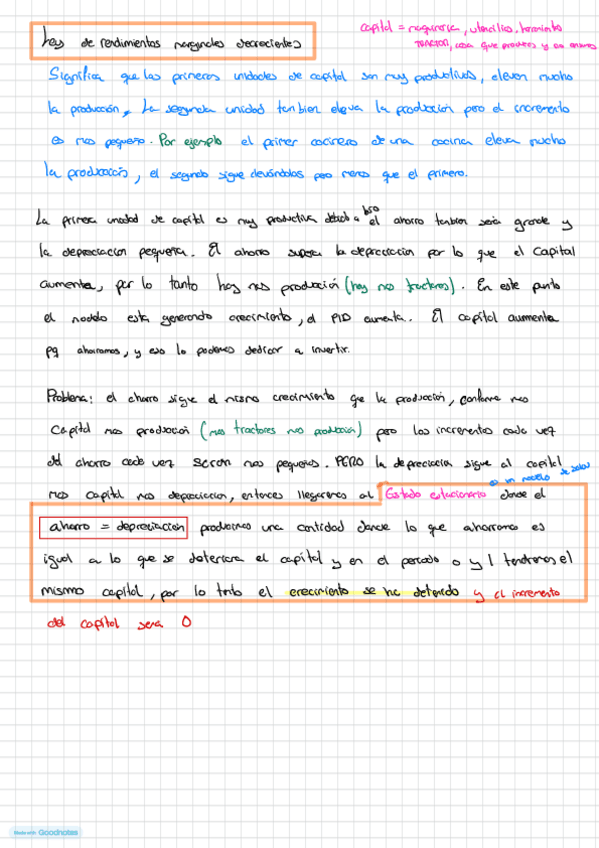 Ley de rendimientos marginales decrecientes
capital = maquinaria, utensilios, herramienta
TRACTOR, cosa que produces y es
Significa que las primeras unidades de capital son muy productivas, elevan mucho
la producción, La segunda unidad tambien eleva la producción pero el incremento
es mas pequeño. Por ejemplo el primer cocinero de una cocina eleva mucho
la producción, el segundo sigue elevándolas pero menos que el primero.
La primera unidad de capital es muy productiva debido a el ahorro tambien seria grande y
la depreciacion pequeña. El ahorro supera la depreciacion por lo que el Capital
aumenta, por lo tanto hay mas producción (hay mas tractores). En este punto
el modelo esta generando crecimiento, el PIB aumenta. El capital aumenta
pq ahorramos, y eso lo podemos dedicar a invertir.
Problema: el ahorro sigue el mismo crecimiento que la producción, conforme mas
Capital mas producción (mas tractores mas producción) pero los incrementos cada vez
del ahorro cada vez seran mas pequeños. PERO la depreciacion sigue al capital
es un modelo de solow
mas capital mas depreciacion, entonces llegaremos al Estado estacionario donde el
ahorro = depreciacion producimos una cantidad donde lo que ahorramos es
igual a lo que se deteriora el capital y en el periodo 0 y 1 tendremos el
mismo capital, por lo tanto el crecimiento se ha detenido y el incremento
del capital sera 0
Made with Goodnotes